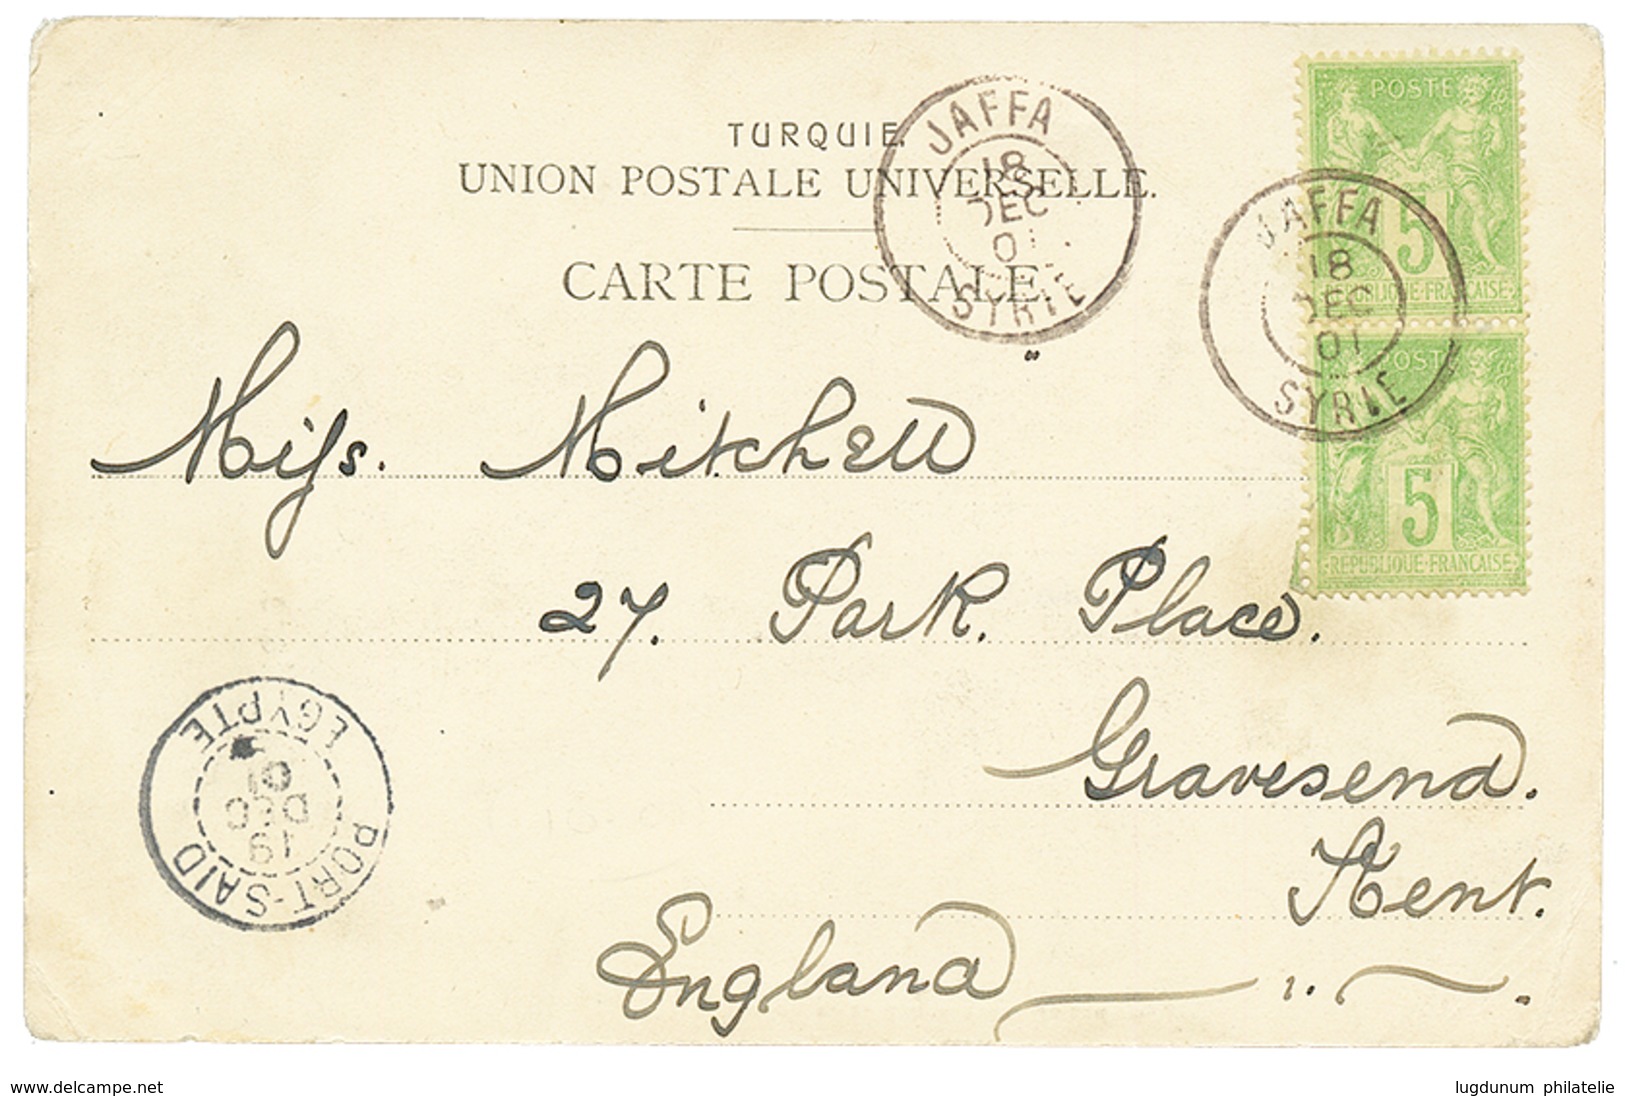 TURQUIE.
UNION POSTALE UNIVERSELLE.
CARTE POSTALE.
JAFFA
18
DEC
01
SYRIE
POSTE
5
REPUBLIQUE FRANÇAISE
JAFFA
18
DEC
01
SYRIE
POSTE
5
REPUBLIQUE FRANÇAISE
Miss. Mitchell
27. Park. Place.
Gravesend.
Kent.
England
PORT-SAID
19
DEC
01
EGYPTE
www.delcampe.net
lugdunum philatelie